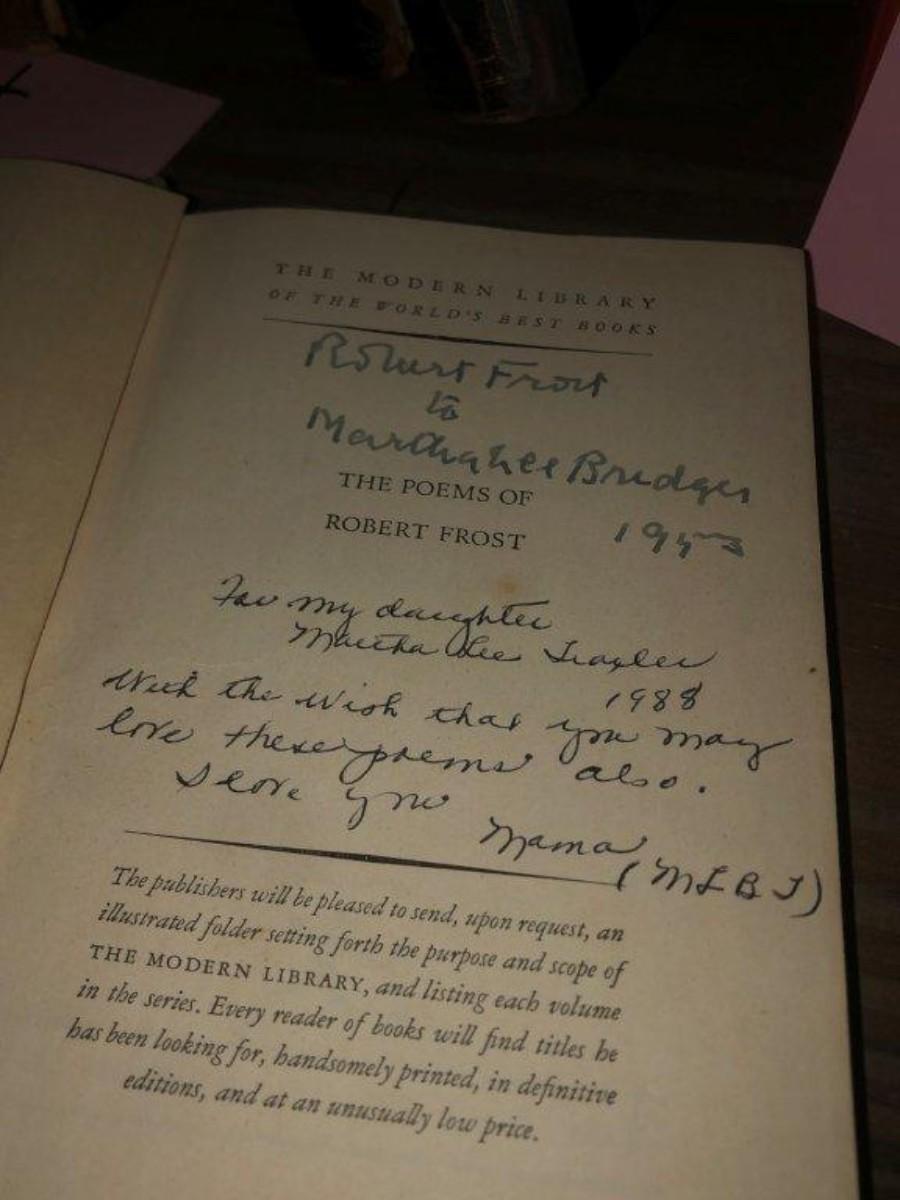 THE MODERN LIBRARY
OF THE WORLD'S BEST BOOKS
Robert Frost
to
Martha Lee Bridges
THE POEMS OF
1953
ROBERT FROST
For my daughter
Martha Lee
1988
With the wish that you may
love these poems also.
I love you
Mama
(MLBT)
The publishers will be pleased to send, upon request, an
illustrated folder setting forth the purpose and scope of
THE MODERN LIBRARY, and listing each volume
in the series. Every reader of books will find titles he
has been looking for, handsomely printed, in definitive
editions, and at an unusually low price.